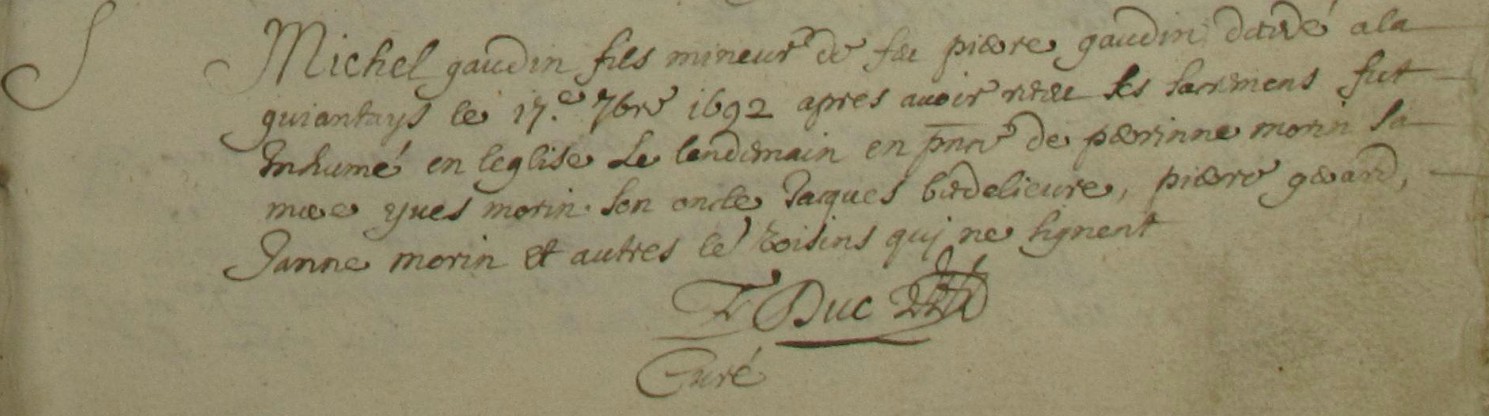 Michel gaudin fils mineur de feu pierre gaudin décédé a la
guiantays le 17.e 7bre 1692 apres avoir receu les sacremens fut
Inhumé en leglise Le lendemain en pnce de perrinne morin sa
mere yves morin son oncle Jacques bedelieure, pierre gerard,
Janne morin et autres le voisins quj ne signent
Duc
Curé